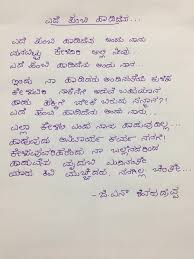 ಎದೆ ತುಂಬಿ ಹಾಡಿದೆನು...
ಎದೆ ತುಂಬಿ ಹಾಡಿದೆನು ಅಂದು ನಾನು
ಮನವಿಟ್ಟು ಕೇಳಿದಿರಿ ಅಲ್ಲಿ ನೀವು
ಎದೆ ತುಂಬಿ ಹಾಡಿದೆನು ಅಂದು ನಾನು
ಇಂದು ನಾ ಹಾಡಿದರು ಅಂದಿನಂತೆಯೆ ಕುಳಿತು
ಕೇಳುವಿರಿ ಸಾಕೆನಗೆ ಅದುವೆ ಬಹುಮಾನ
ಹಾಡು ಹಕ್ಕಿಗೆ ಬೇಕೆ ಬಿರುದು ಸನ್ಮಾನ?
ಎದೆ ತುಂಬಿ ಹಾಡಿದೆನು ಅಂದು ನಾನು...
ಎಲ್ಲ ಕೇಳಲಿ ಎಂದು ನಾನು ಹಾಡುವುದಿಲ್ಲ..
ಹಾಡುವುದು ಅನಿವಾರ್ಯ ಕರ್ಮ ನನಗೆ
ಕೇಳುವವರಿಹರೆಂದು ನಾ ಬಲ್ಲೆನದರಿಂದ
ಹಾಡುವೆನು ಮೈದುಂಬಿ ಎಂದಿನಂತೆ
ಯಾರು ಕಿವಿ ಮುಚ್ಚಿದರೂ ನನಗಿಲ್ಲ ಚಿಂತೆ..